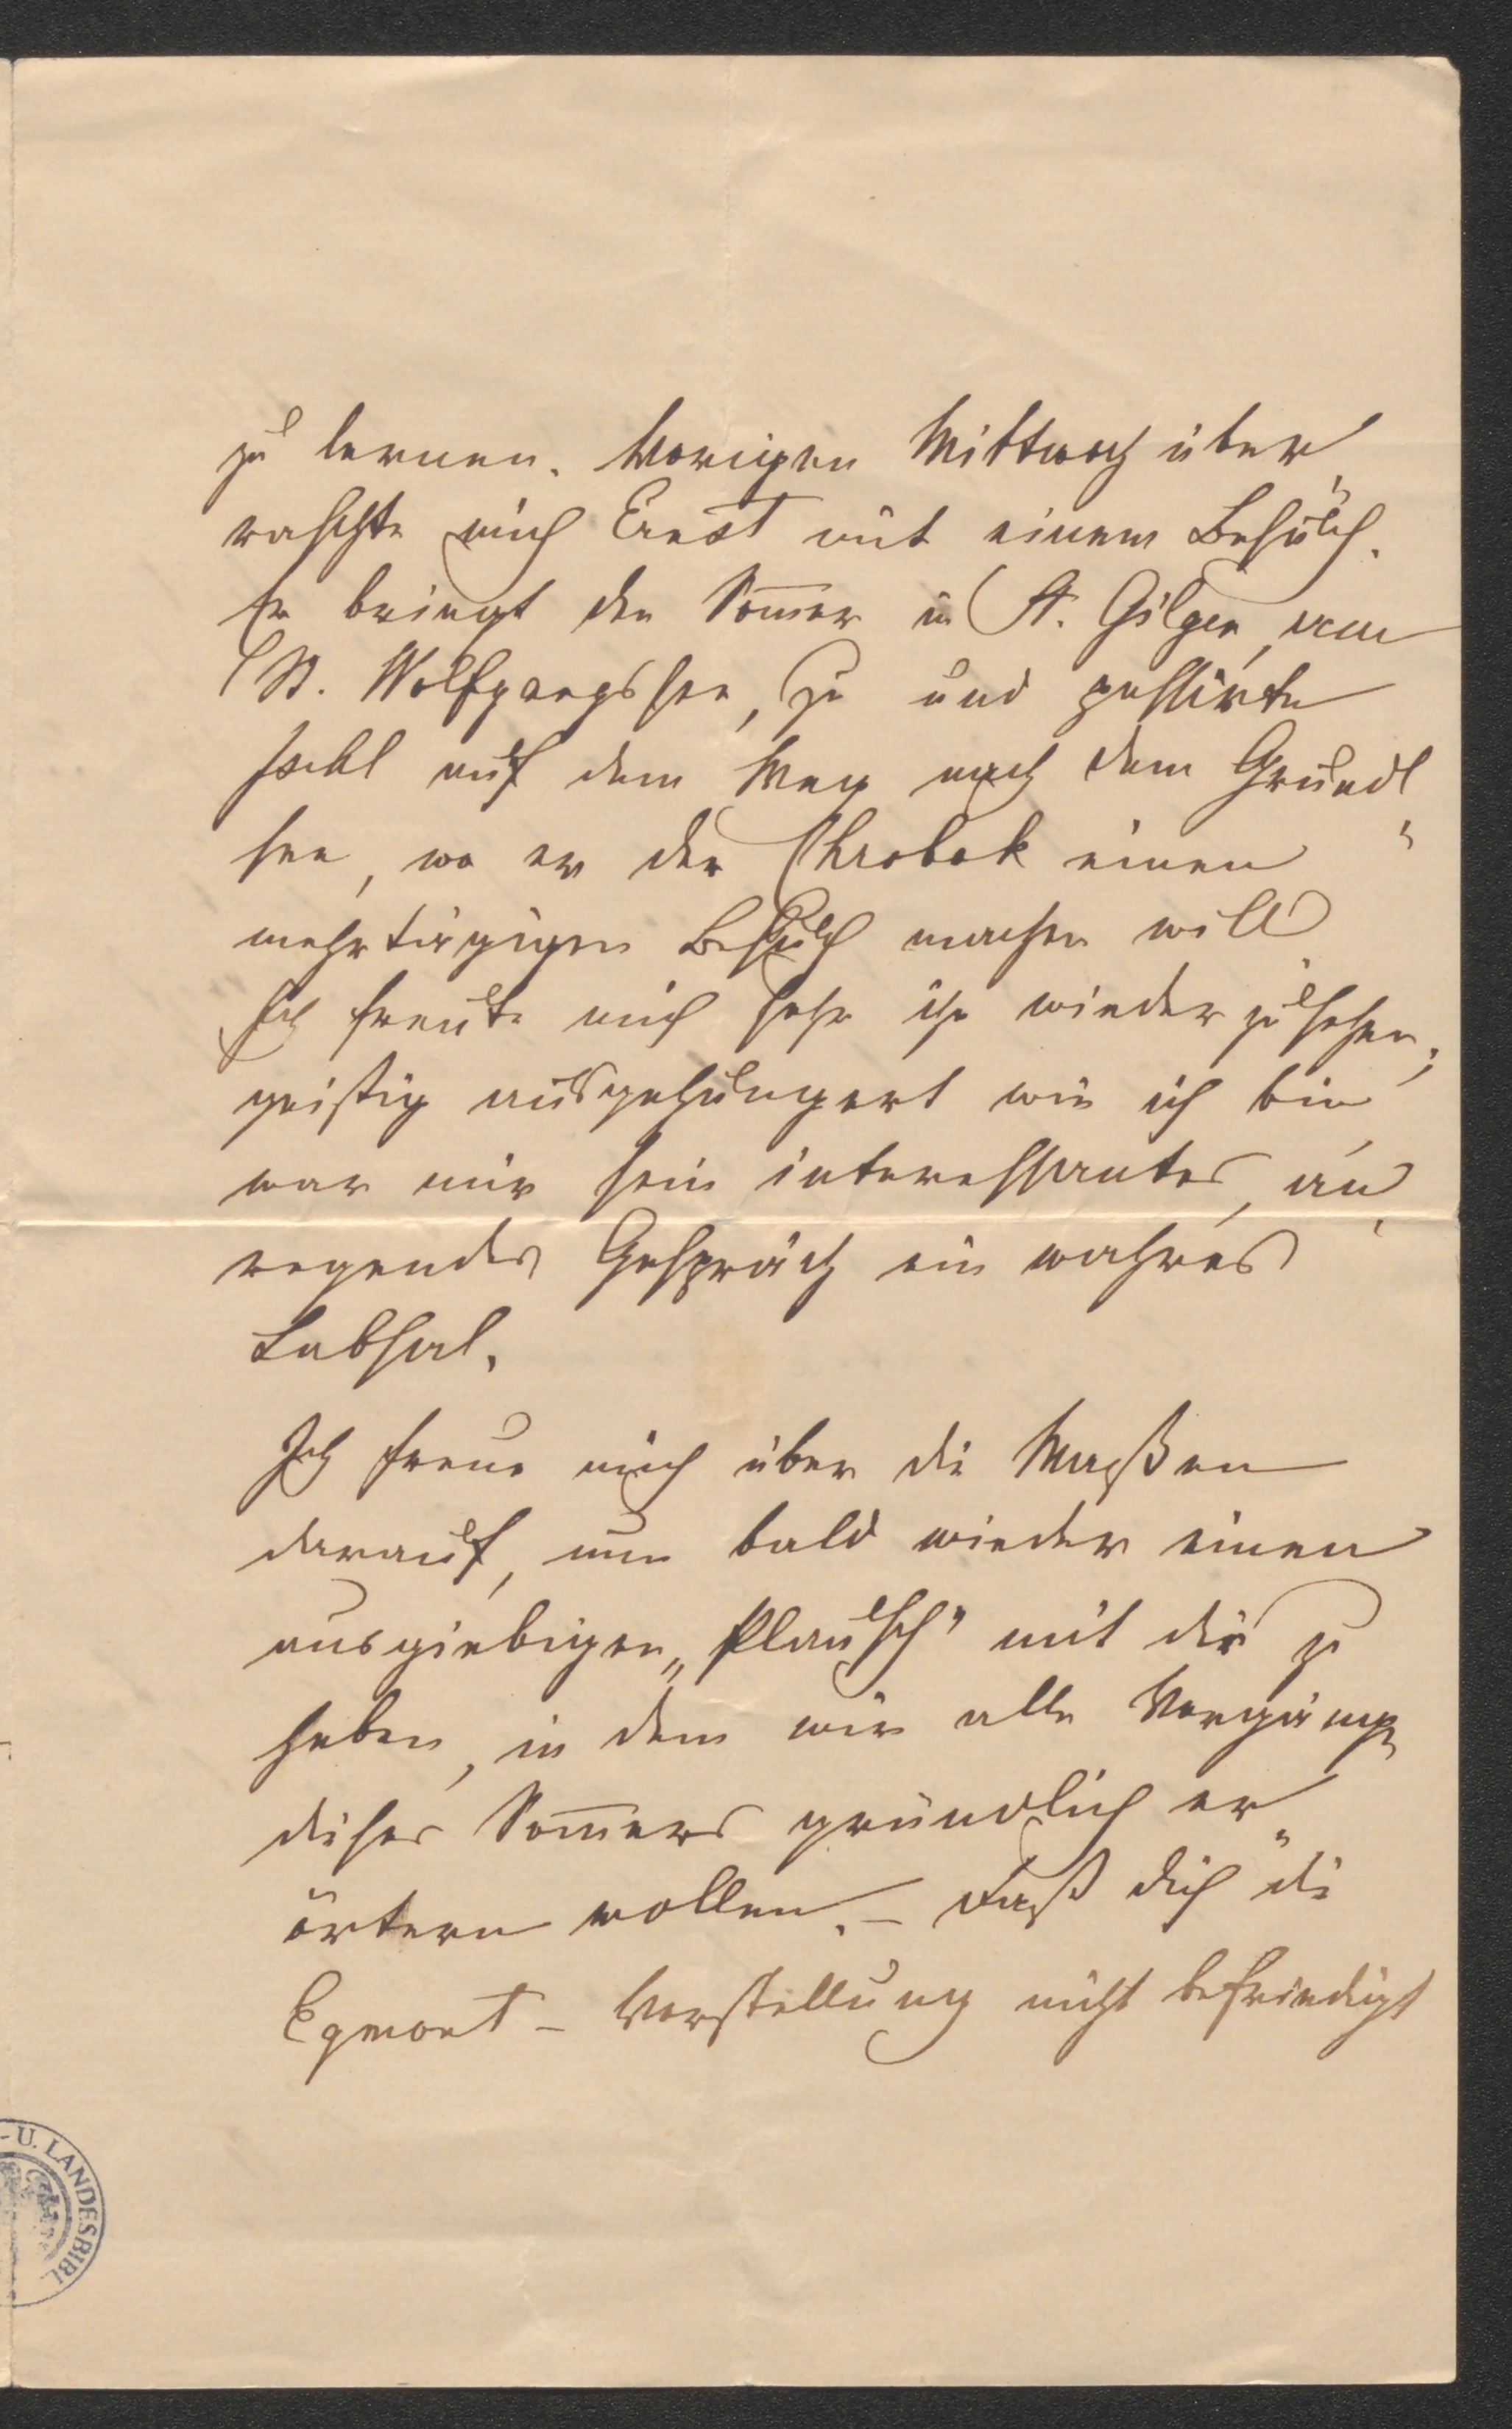 zu lernen. Vorigen Mittwoch über„
raschte mich Ernst mit einem Besuch.
Er bringt den Som̅er in St. Gilgen, am
St. Wolfgangssee, zu und passirte
Ischl auf dem Weg nach dem Grundl„
see, wo er den Chrobak einen
mehrtägigen Besuch machen will
Ich freute mich sehr ihn wieder zu sehen;
geistig ausgehungert wie ich bin
war mir sein interessantes, an„
regendes Gespräch ein wahres
Labsal.
Ich freue mich über die Maßen
darauf, nun bald wieder einen
ausgiebigen „Plausch" mit dir zu
haben, in dem wir alle Vorgänge
dieses Som̅ers gründlich er„
örtern wollen. – Daß dich die
Egmont – Vorstellung nicht befriedigt
U. LANDESBIBL.